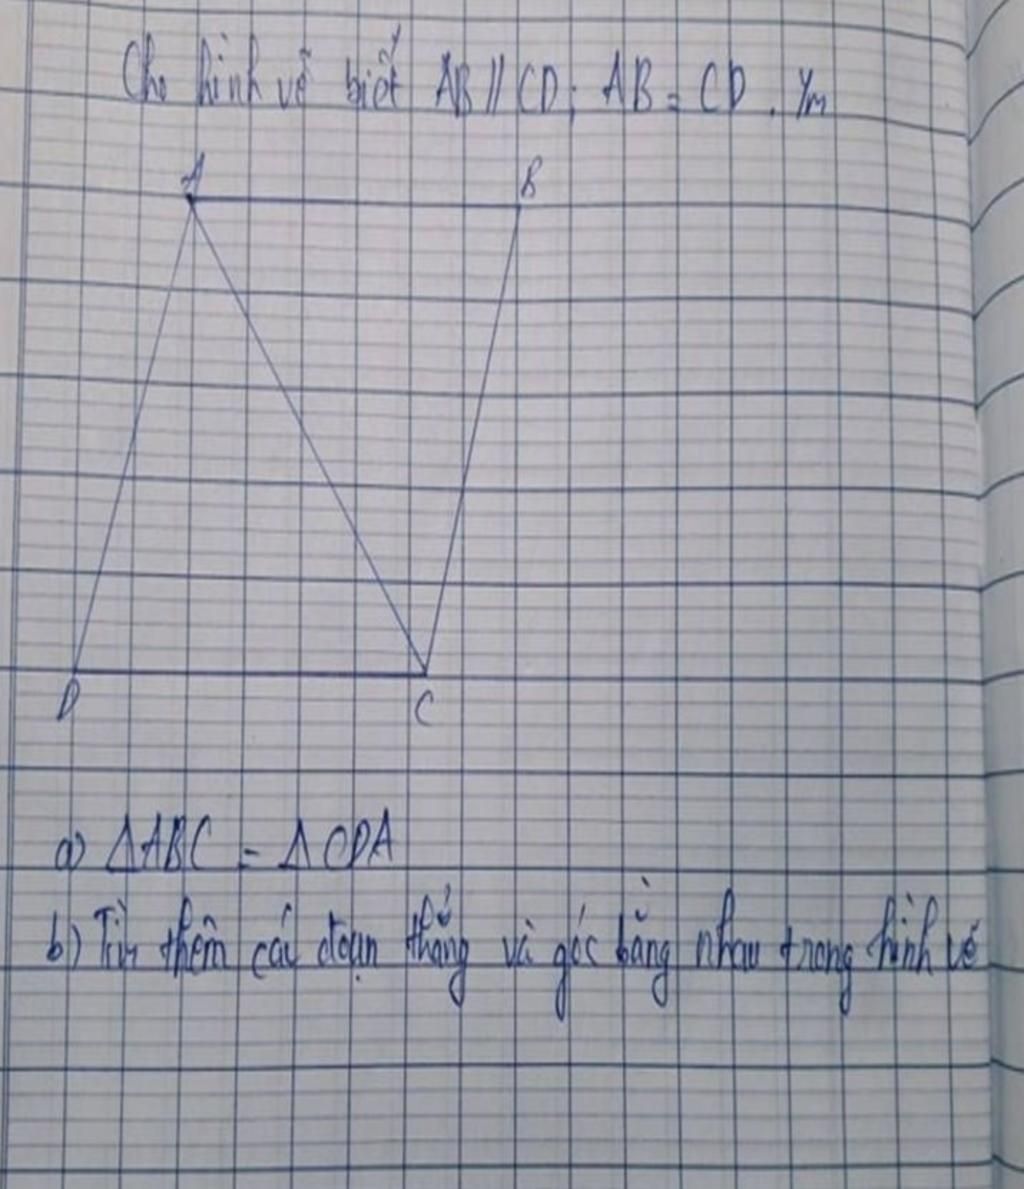 Cho hình vẽ biết AB // CD; AB = CD. Cm
A
B
D
C
a) ΔABC = ΔCDA
b) Tìm thêm các đoạn thẳng và góc bằng nhau trong hình vẽ